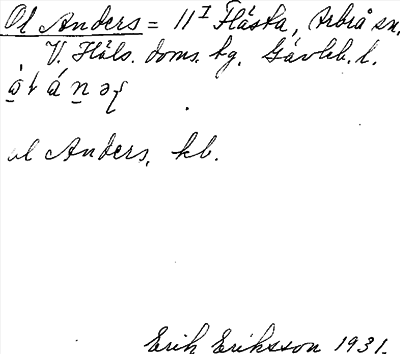 Ol Anders = 11<sup>I</sup> Flästa, Arbrå sn,
V. Häls. doms. hg. Gävleb. l.
ol Anders, kb.
Erik Eriksson 1931.